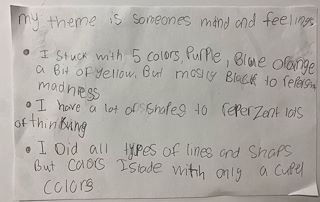 my theme is someones mind and feelings
• I Stuck with 5 colors, Purple, Blue orange
a Bit of yellow. But mosly Black to
madness
• I have a lot of shapes to reperzent lots
of thinking
• I Did all types of lines and shaps
But colors with only a
colors